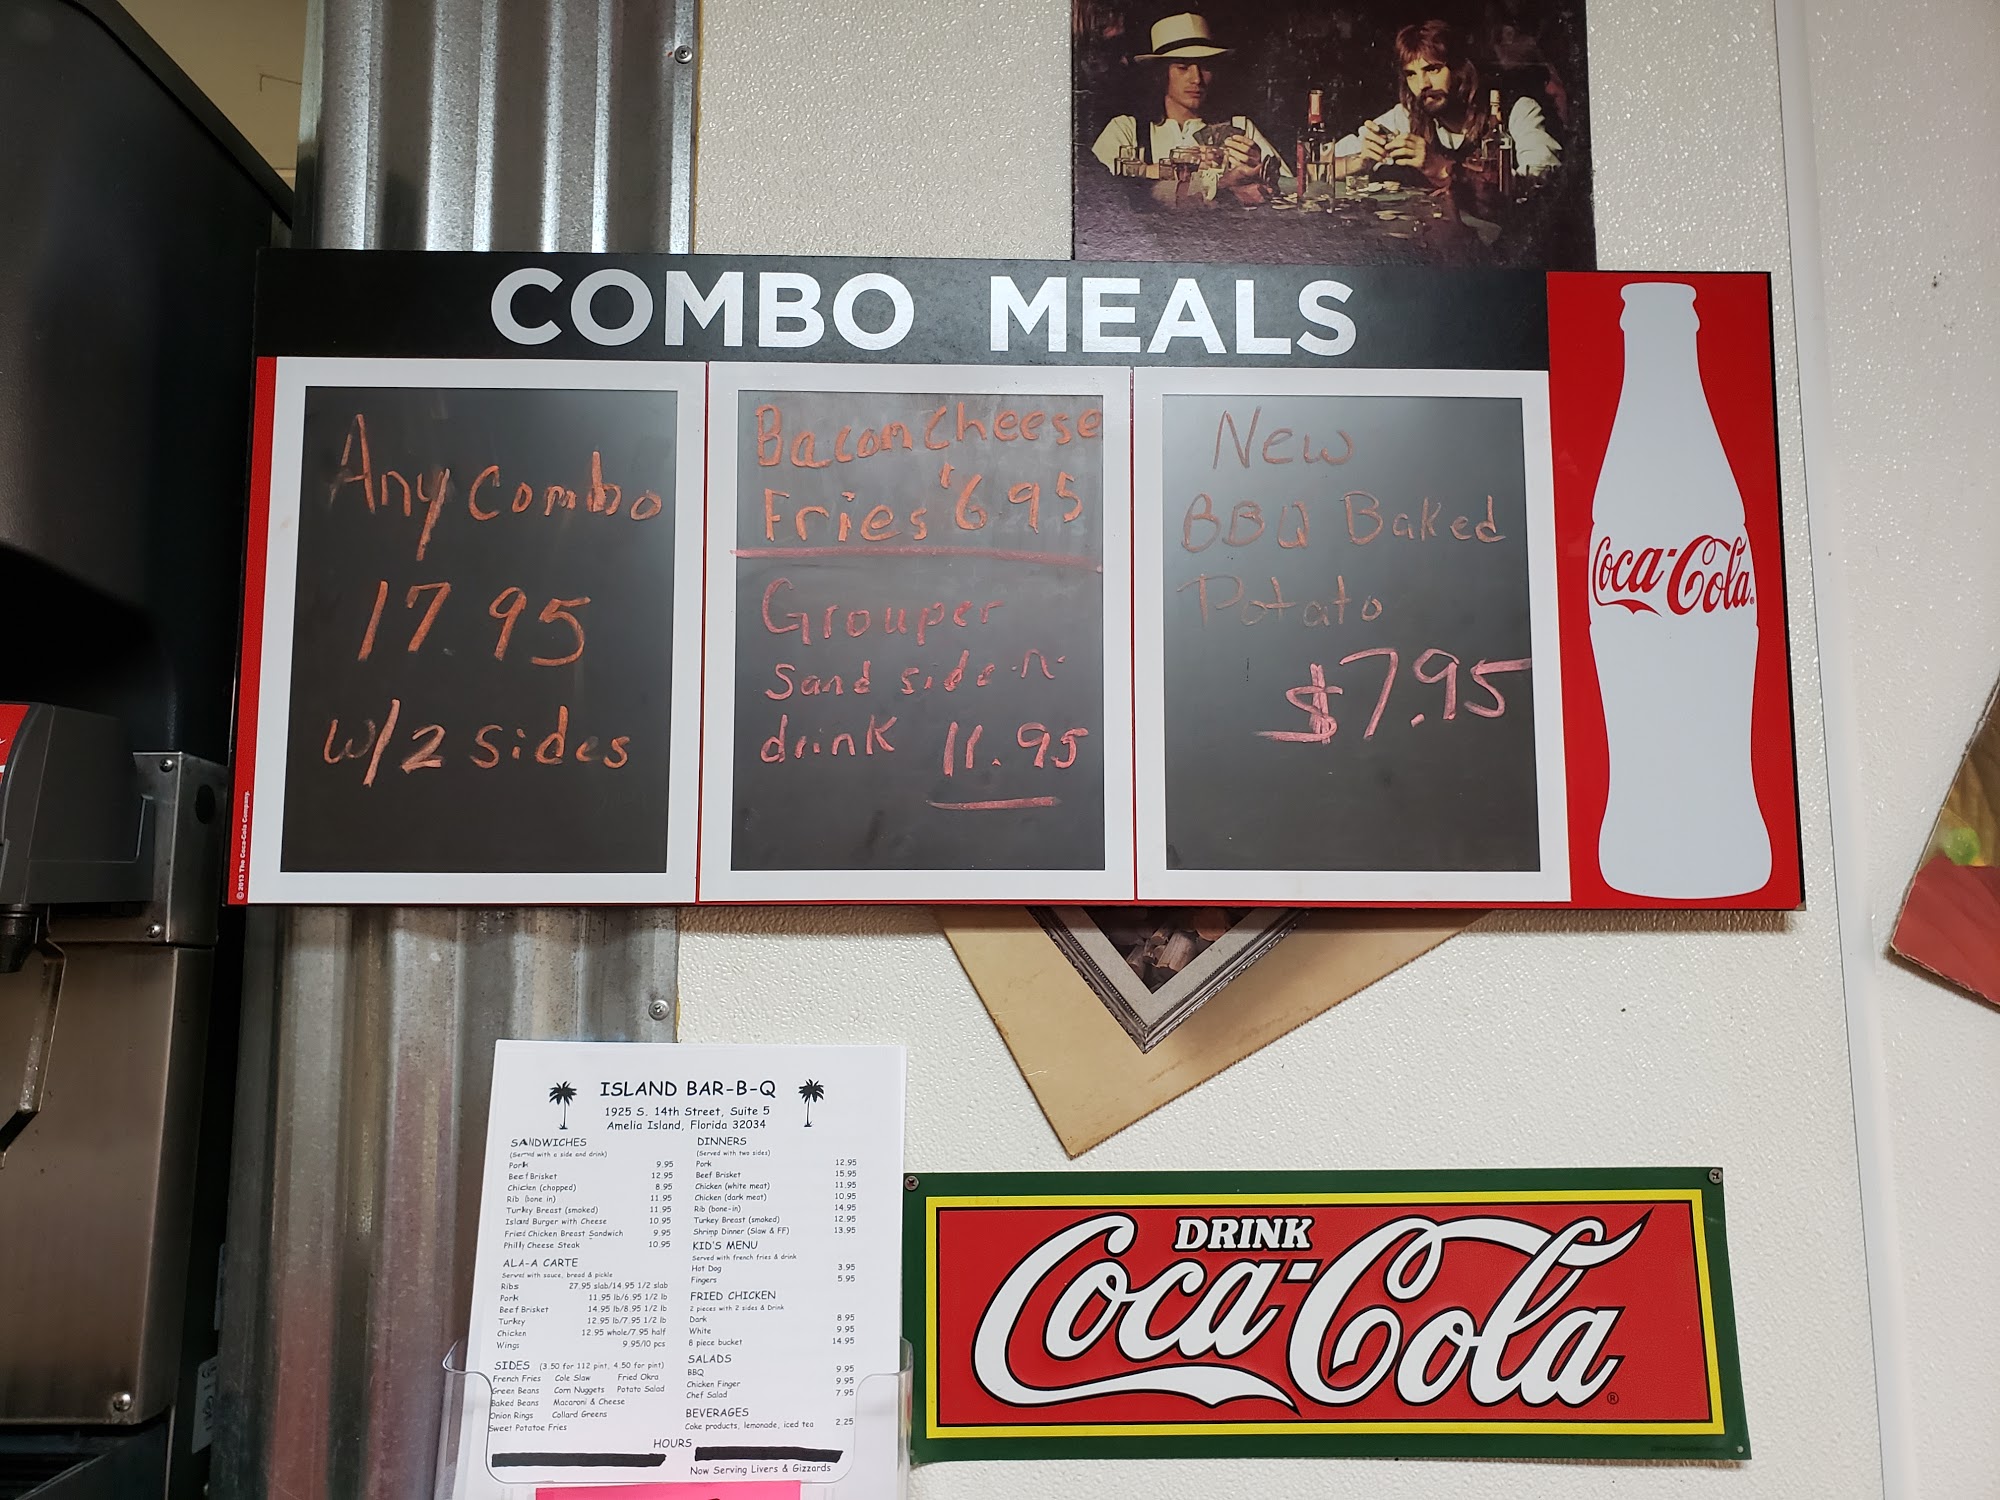 COMBO MEALS
Any Combo
17.95
w/2 sides
Bacon Cheese
Fries $6.95
Grouper
Sand side-n-
drink 11.95
New
BBQ Baked
Potato
$7.95
Coca-Cola
© 2013 The Coca-Cola Company.
ISLAND BAR-B-Q
1925 S. 14th Street, Suite 5
Amelia Island, Florida 32034
SANDWICHES
(Served with a side and drink)
Pork 9.95
Beef Brisket 12.95
Chicken (chopped) 8.95
Rib (bone in) 11.95
Turkey Breast (smoked) 11.95
Island Burger with Cheese 10.95
Fried Chicken Breast Sandwich 9.95
Philly Cheese Steak 10.95
ALA-A CARTE
Served with sauce, bread & pickle
Ribs 27.95 slab/14.95 1/2 slab
Pork 11.95 lb/6.95 1/2 lb
Beef Brisket 14.95 lb/8.95 1/2 lb
Turkey 12.95 lb/7.95 1/2 lb
Chicken 12.95 whole/7.95 half
Wings 9.95/10 pcs
SIDES (3.50 for 112 pint, 4.50 for pint)
French Fries Cole Slaw Fried Okra
Green Beans Corn Nuggets Potato Salad
Baked Beans Macaroni & Cheese
Onion Rings Collard Greens
Sweet Potatoe Fries
DINNERS
(Served with two sides)
Pork 12.95
Beef Brisket 15.95
Chicken (white meat) 11.95
Chicken (dark meat) 10.95
Rib (bone-in) 14.95
Turkey Breast (smoked) 12.95
Shrimp Dinner (Slaw & FF) 13.95
KID'S MENU
Served with french fries & drink
Hot Dog 3.95
Fingers 5.95
FRIED CHICKEN
2 pieces with 2 sides & Drink
Dark 8.95
White 9.95
8 piece bucket 14.95
SALADS
BBQ 9.95
Chicken Finger 9.95
Chef Salad 7.95
BEVERAGES
Coke products, lemonade, iced tea 2.25
HOURS
Now Serving Livers & Gizzards
DRINK
Coca-Cola
®